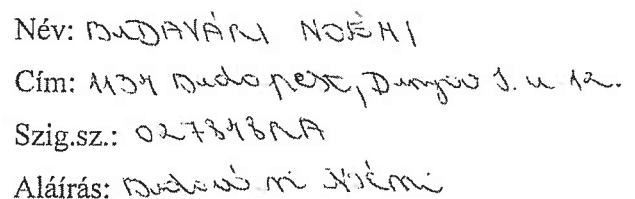 Név: BUDAVÁRI NOÉMI
Cím: 1134 Budapest, u 12.
Szig.sz.:
Aláírás: Budavári Noémi